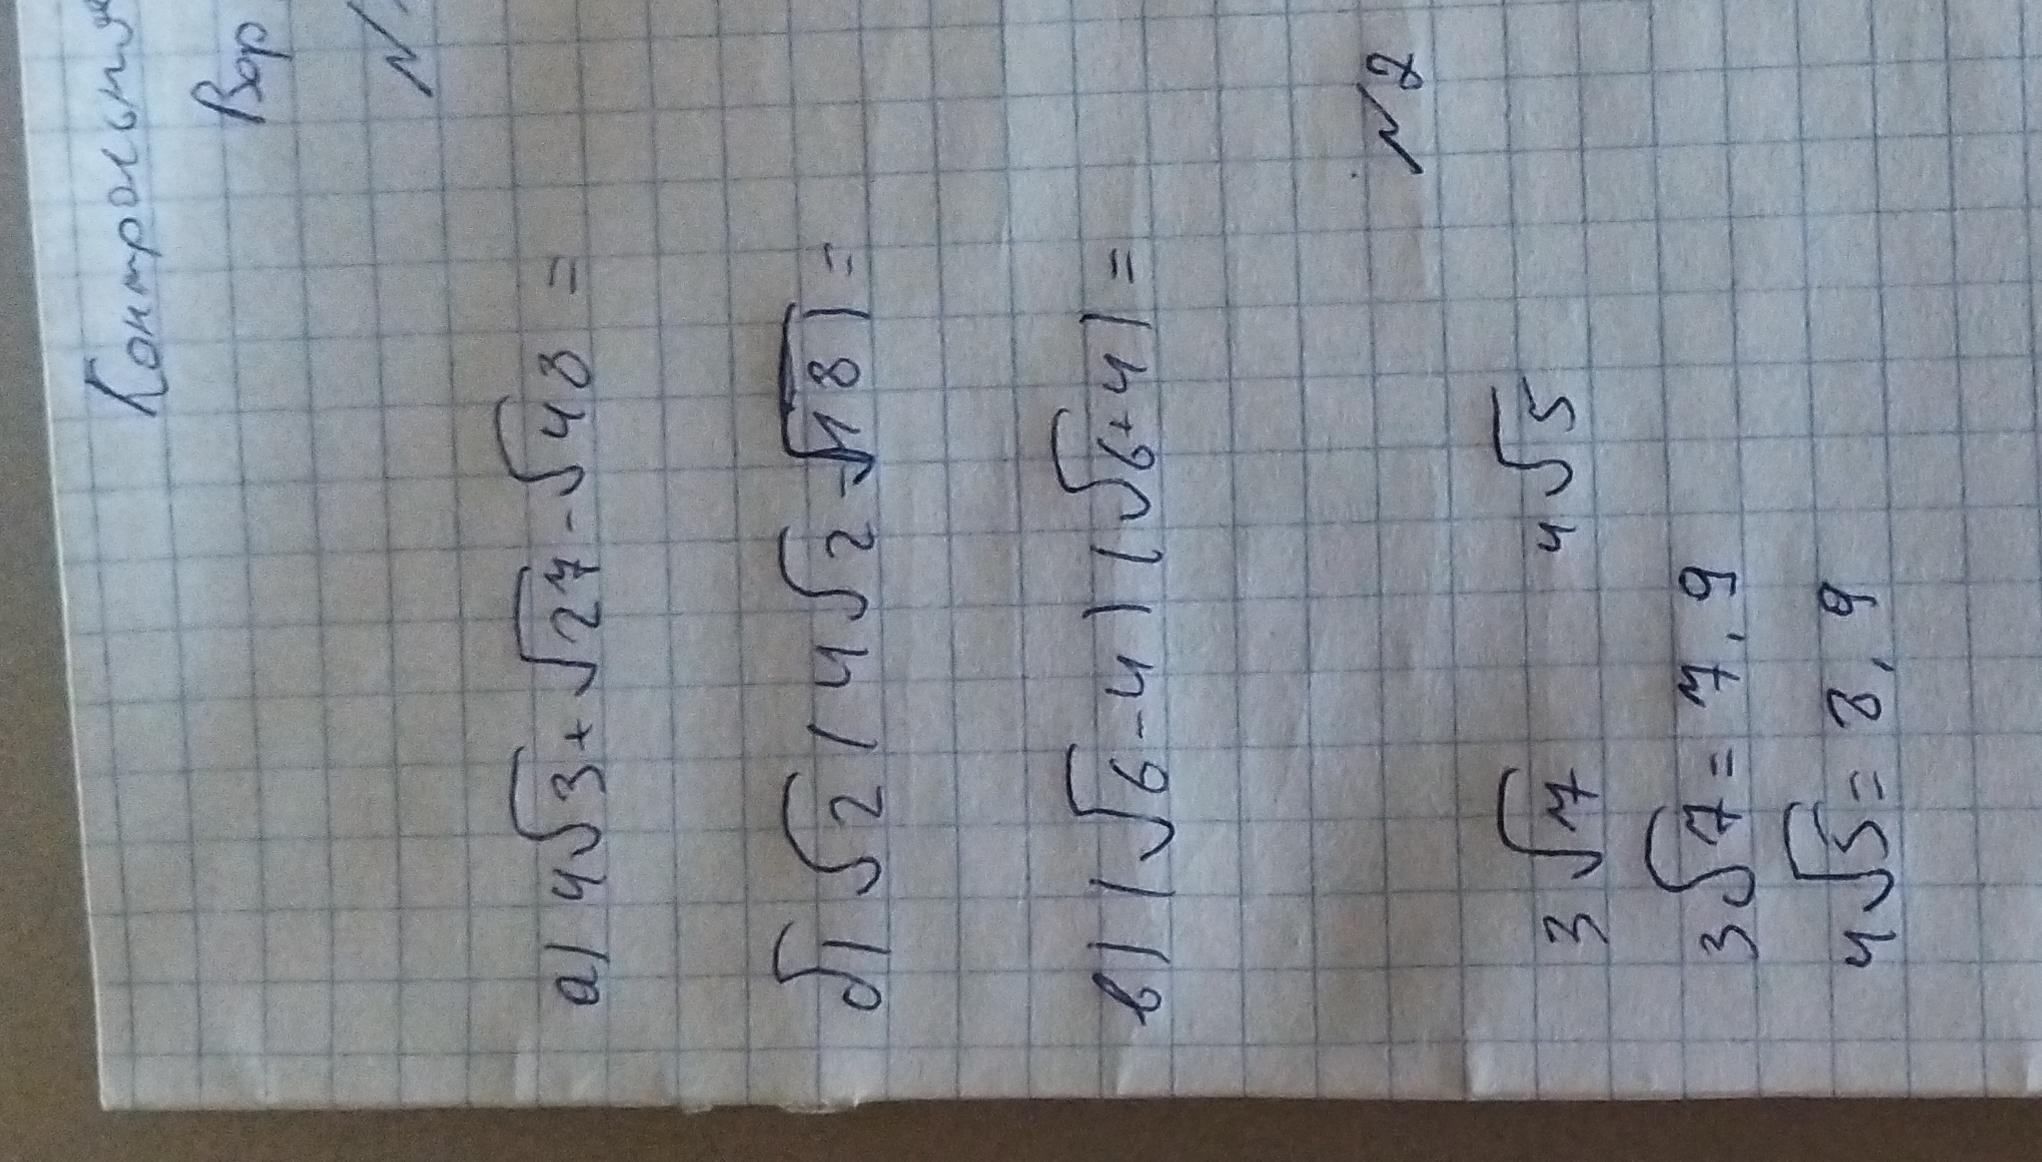 Контрольная
Вар
N
а) 4√3+√27-√48=
б) √2(4√2-√18)=
в) (√6-4)(√6+4)=
N2
3√7 4√5
3√7=7,9
4√5=8,9